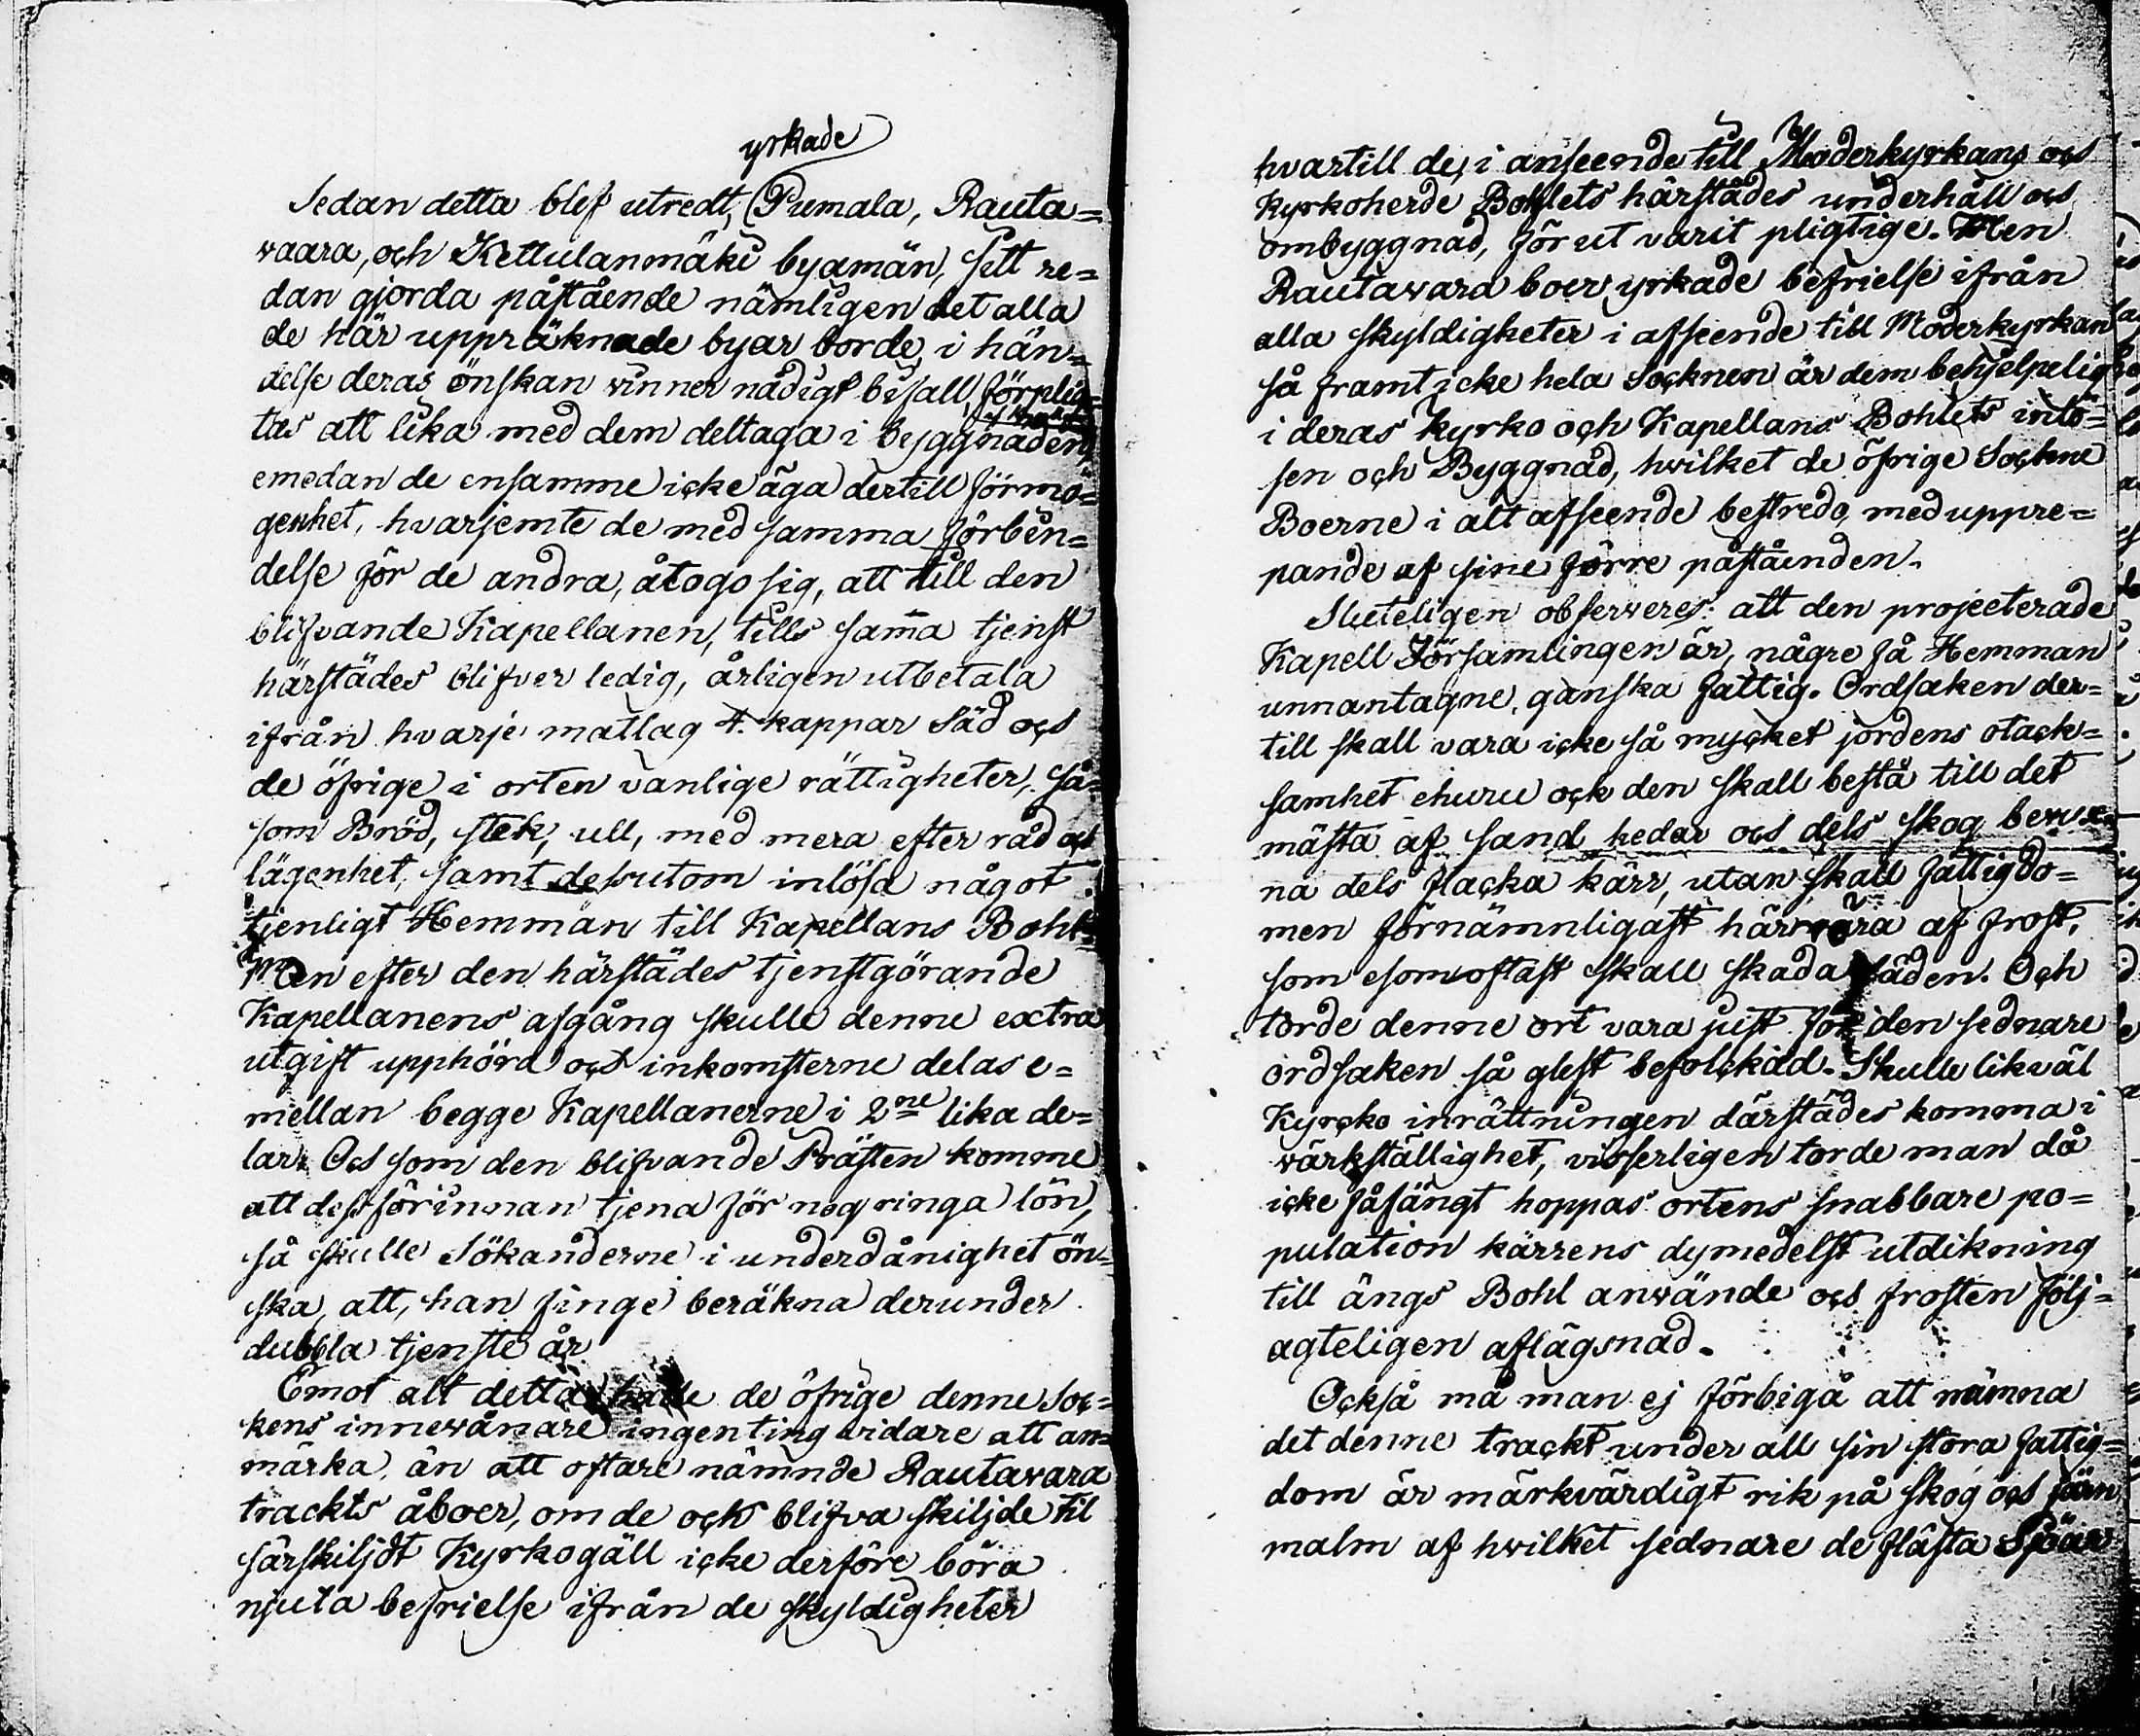 yrkade
Sedan detta blef utredt, Pumala, Rauta=
waara, och Kettulanmäki byamän, sitt re=
dan gjorda påstående nämligen det alla
de här uppräknade byar borde, i hän=
delse deras önskan vinner nådigt bifall, förplig=
tas att lika med dem deltaga i byggnaden,
emedan de ensamme icke äga dertill förmö=
genhet, hvarjemte de med samma förbin=
delse för de andra, åtogo sig, att till den
blifvande Kapellanen, tills sam̄a tjenst
härstädes blifver ledig, årligen utbetala
ifrån hvarje matlag 4. kappar Säd och
de öfrige i orten vanlige rättigheter, så=
som Bröd, stek, ull, med mera efter råd och
lägenhet, samt desutom inlösa något
tjenligt Hemman till Kapellans Bohl.
Men efter den härstädes tjenstgörande
Kapellanens afgång skulle denne extra
utgift upphöra och inkomsterne delas e=
mellan begge Kapellanerne i 2ne lika de=
lar. Och som den blifvande Prästen komme
att dessförinnan tjena för nog ringa lön,
så skulle Sökanderne i underdånighet ön=
ska, att, han finge beräkna derunder
dubbla tjenste år.
Emot alt detta hade de öfrige denne Soc=
kens innewånare ingenting vidare att an=
märka, än att oftare nämnde Rautawara
trackts åboer, om de ock blifva skiljde til
särskiljdt Kyrkogäll icke derföre böra
njuta befrielse ifrån de skyldigheter
hvartill de, i anseende till Moderkyrkans och
Kyrkoherde Bohlets härstädes underhåll och
ombyggnad, förut varit pligtige. Men
Rautawara boer yrkade befrielse ifrån
alla skyldigheter i afseende till Moderkyrkan
så framt icke hela Socknen är dem behjelpelig
i deras Kyrko och Kapellans Bohlets inlö=
sen och Byggnad, hwilket de öfrige Sockne
Boerne i alt afseende bestredo, med uppre=
pande af sine förre påståenden.
Sluteligen observeres: att den projecterade
Kapell Församlingen är, några få Hemman
unnantagne, ganska fattig. Ordsaken der=
till skall vara icke så mycket jordens otack=
samhet ehuru ock den skall bestå till det
mästa af sand hedar och dels skog bewux=
na dels flacka kärr, utan skall fattigdo=
men förnämnligast härröra af frost,
som esomoftast skall skada säden. Och
torde denne ort vara just för den sednare
ordsaken så glest befolckad. Skulle likväl
Kyrcko inrättningen därstädes komma i
värkställighet, visserligen torde man då
icke fåfängt hoppas ortens snabbare po=
pulation kärrens dymedelst utdikning
till ängs Bohl anwände och frosten följ=
agteligen aflägsnad.
Också må man ej förbigå att nämna
det denne trackt under all sin stora fattig=
dom är märkvärdigt rik på skog och järn
malm af hwilket sednare de flästa Sjöar